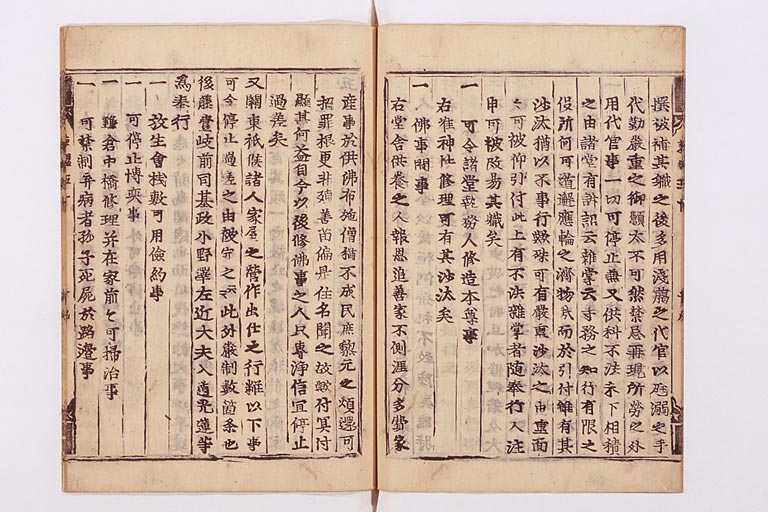 撰被補其職之後多用淺﨟之代官以
代勤嚴重之御願太不可然禁忌并現所勞之外
用代官事一切可停止兼又供料不法未下相積
之由諸堂有訴訟云雜掌云寺務之知行有限之
役所何可遁避應輪之濟物哉而於引付雖有其
沙汰猶以不事行歟殊可有嚴重沙汰之由重面
々可被仰引付此上有不法雜掌者隨奉行人注
申可被改易其職矣
一 可令諸堂執務人修造本尊事
右准神社修理可有其沙汰矣
一 佛事間事
右堂舍供養之人報恩追善家不測涯分多費家
產事於供佛布施僧猶不成民庶黎元之煩還可
招罪根更非殖善苗偏是住名聞之故歟付冥付
顯其何益自今以後修佛事之人只專淨信宜停止
過差矣
又關東祗候諸人家屋之營作出仕之行粧以下事
可令停止過差之由被定之云云此外嚴制數箇条也
後藤壹岐前司基政小野澤左近大夫入道光蓮等
爲奉行
一 放生會棧敷可用儉約事
一 可停止博奕事
一 鎌倉中橋修理并在家前々可掃治事
一 可禁制弃病者孤子死屍於路邊事